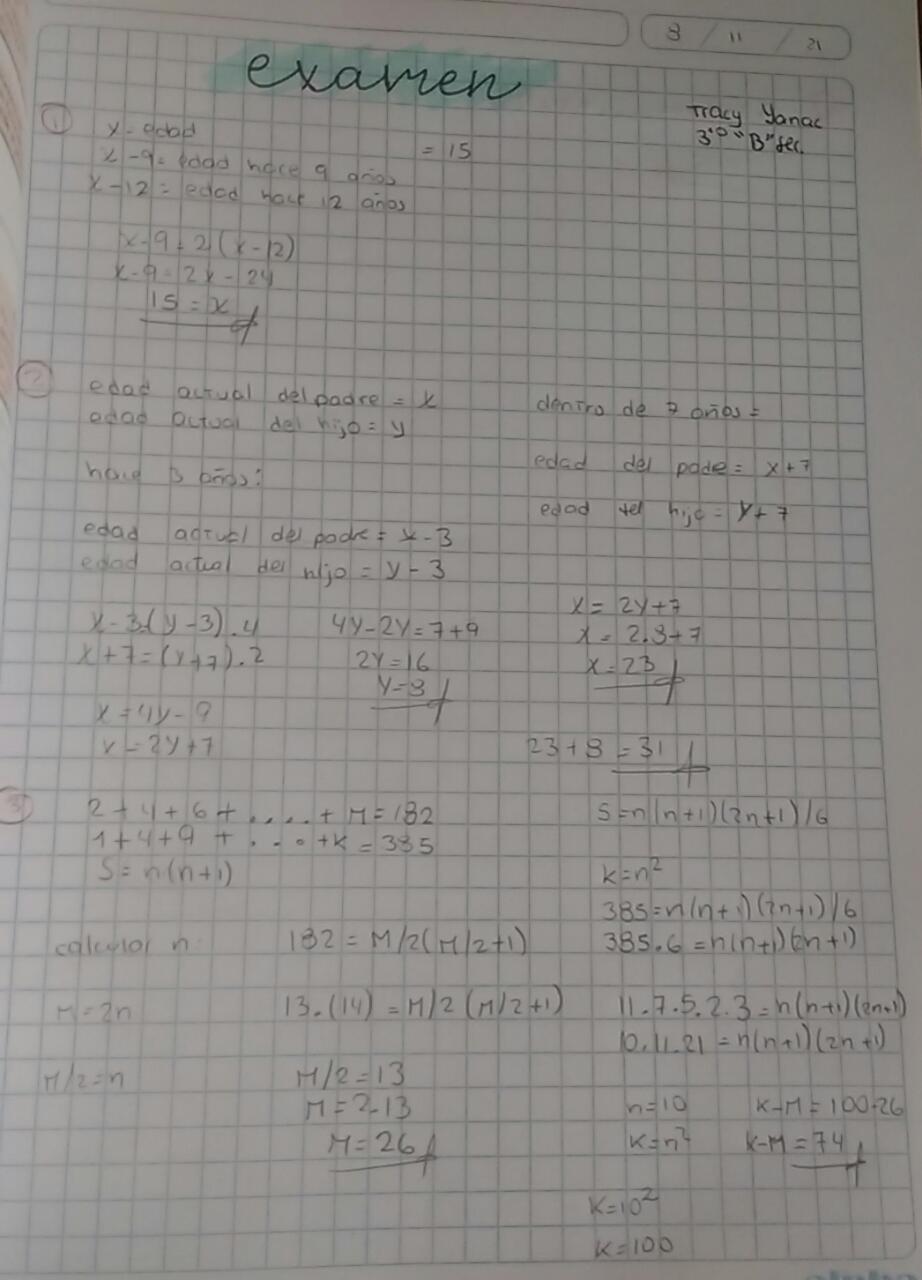 8 / 11 / 21
examen
Tracy Yanac
3°"B" sec.
①
x- edad
= 15
x -9= edad hace 9 años
x-12= edad hace 12 años
x-9=2(x-12)
x-9=2x-24
15=x
②
edad actual del padre = x
edad actual del hijo = y
hace 3 años:
edad actual del padre = x-3
edad actual del hijo = y-3
dentro de 7 años=
edad del pade= x+7
edad del hijo= y+7
x-3=(y-3).4
x+7=(y+7).2
x=4y-9
x=2y+7
4y-2y=7+9
2y=16
y=8
x= 2y+7
x= 2.8+7
x=23
23+8=31
③
2+4+6+.....+M=182
1+4+9+....+k=385
S=n(n+1)
calcular n:
M=2n
M/2=n
182=M/2(M/2+1)
13.(14)=M/2(M/2+1)
M/2=13
M=2.13
M=26
S=n(n+1)(2n+1)/6
k=n²
385=n(n+1)(2n+1)/6
385.6=n(n+1)(2n+1)
11.7.5.2.3=n(n+1)(2n+1)
10.11.21=n(n+1)(2n+1)
n=10
k=n²
k=10²
k=100
k-M=100-26
k-M=74